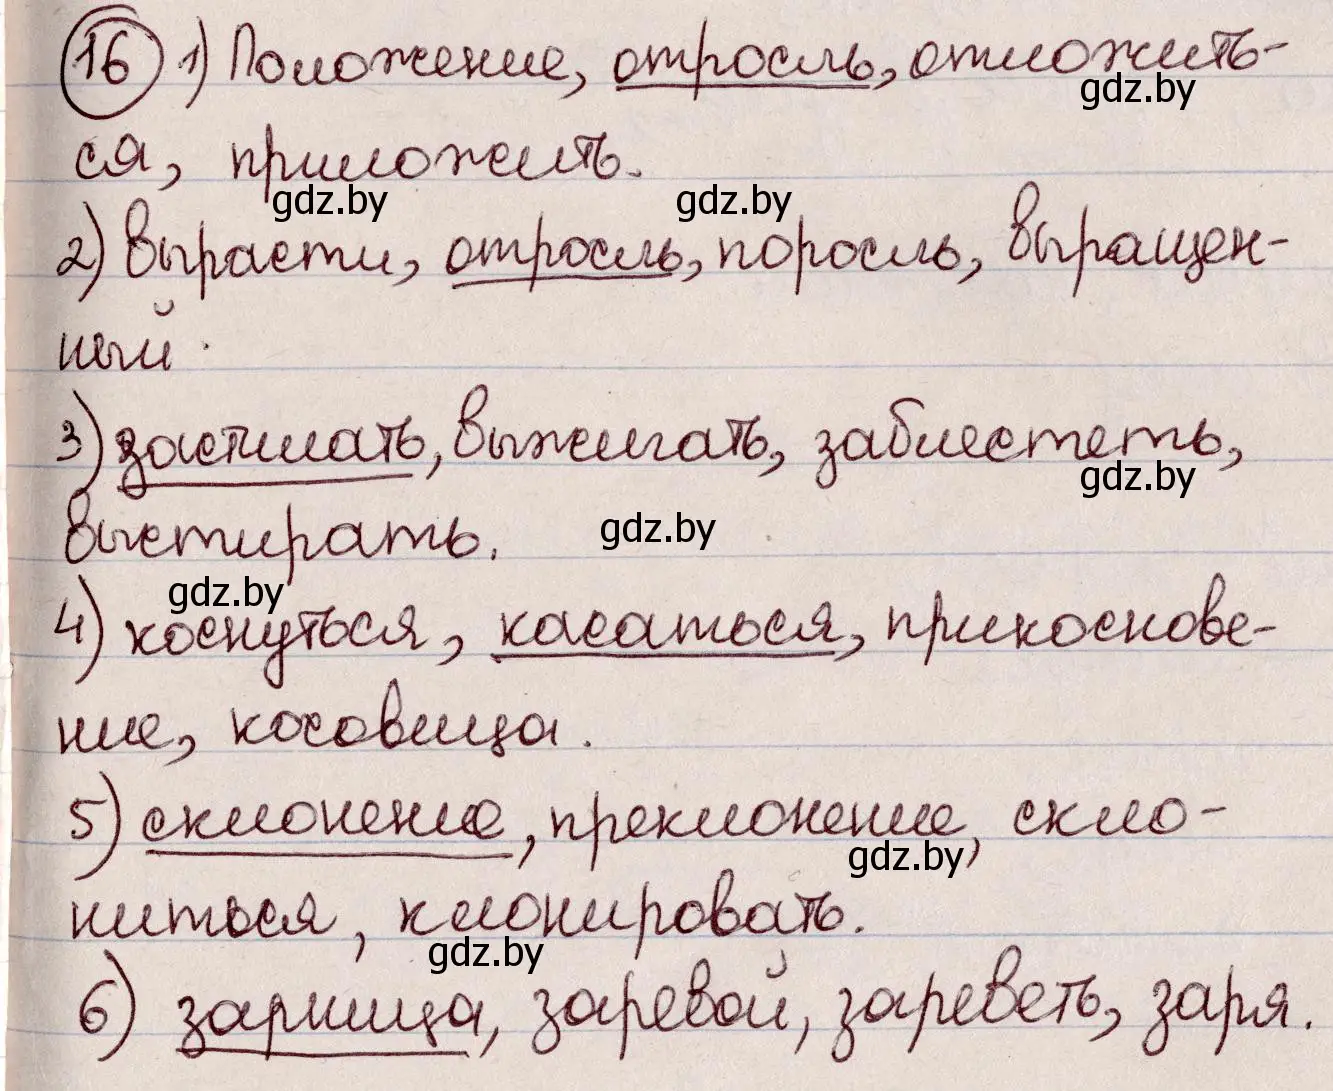 16 1) Положение, отросль, отложить-
gdz.by
ся, приложить.
gdz.by gdz.by
2) вырасти, отросль, поросль, выращен-
ный.
3) застилать, выжигать, заблестеть,
gdz.by
выстирать. gdz.by
gdz.by
4) коснуться, касаться, прикоснове-
ние, косовица.
5) склонение, преклонение, скло-
gdz.by
ниться, клонировать.
gdz.by
6) зарница, заревой, зареветь, заря.